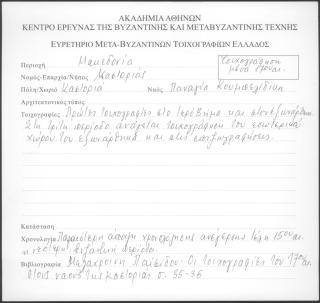 ΑΚΑΔΗΜΙΑ ΑΘΗΝΩΝ
ΚΕΝΤΡΟ ΕΡΕΥΝΑΣ ΤΗΣ ΒΥΖΑΝΤΙΝΗΣ ΚΑΙ ΜΕΤΑΒΥΖΑΝΤΙΝΗΣ ΤΕΧΝΗΣ
ΕΥΡΕΤΗΡΙΟ ΜΕΤΑ-ΒΥΖΑΝΤΙΝΩΝ ΤΟΙΧΟΓΡΑΦΙΩΝ ΕΛΛΑΔΟΣ
Περιοχή Μακεδονία
Τοιχογράφηση
Νομός-Επαρχία/Νήσος Καστοριάς
Πόλη/Χωριό Καστοριά Ναός Παναγία Κουμπελίδικη
Αρχιτεκτονικός τύπος
Τοιχογραφίες Πρώτες τοιχογραφίες στο Ιερό Βήμα και στον εξωνάρθηκα
Στη τρίτη περίοδο ανάγεται τοιχογράφηση του εσωτερικού
χώρου του εξωνάρθηκα και στις επιζωγραφήσεις.
Κατάσταση
Χρονολογία Παλαιότερη άποψη χρονολόγησης ανέγερσης τέλη 15ου αι.
περίοδο
Βιβλιογραφία Παϊσίδου. Οι τοιχογραφίες του 17ου αι.
στους ναούς της Καστοριάς σ. 35-36